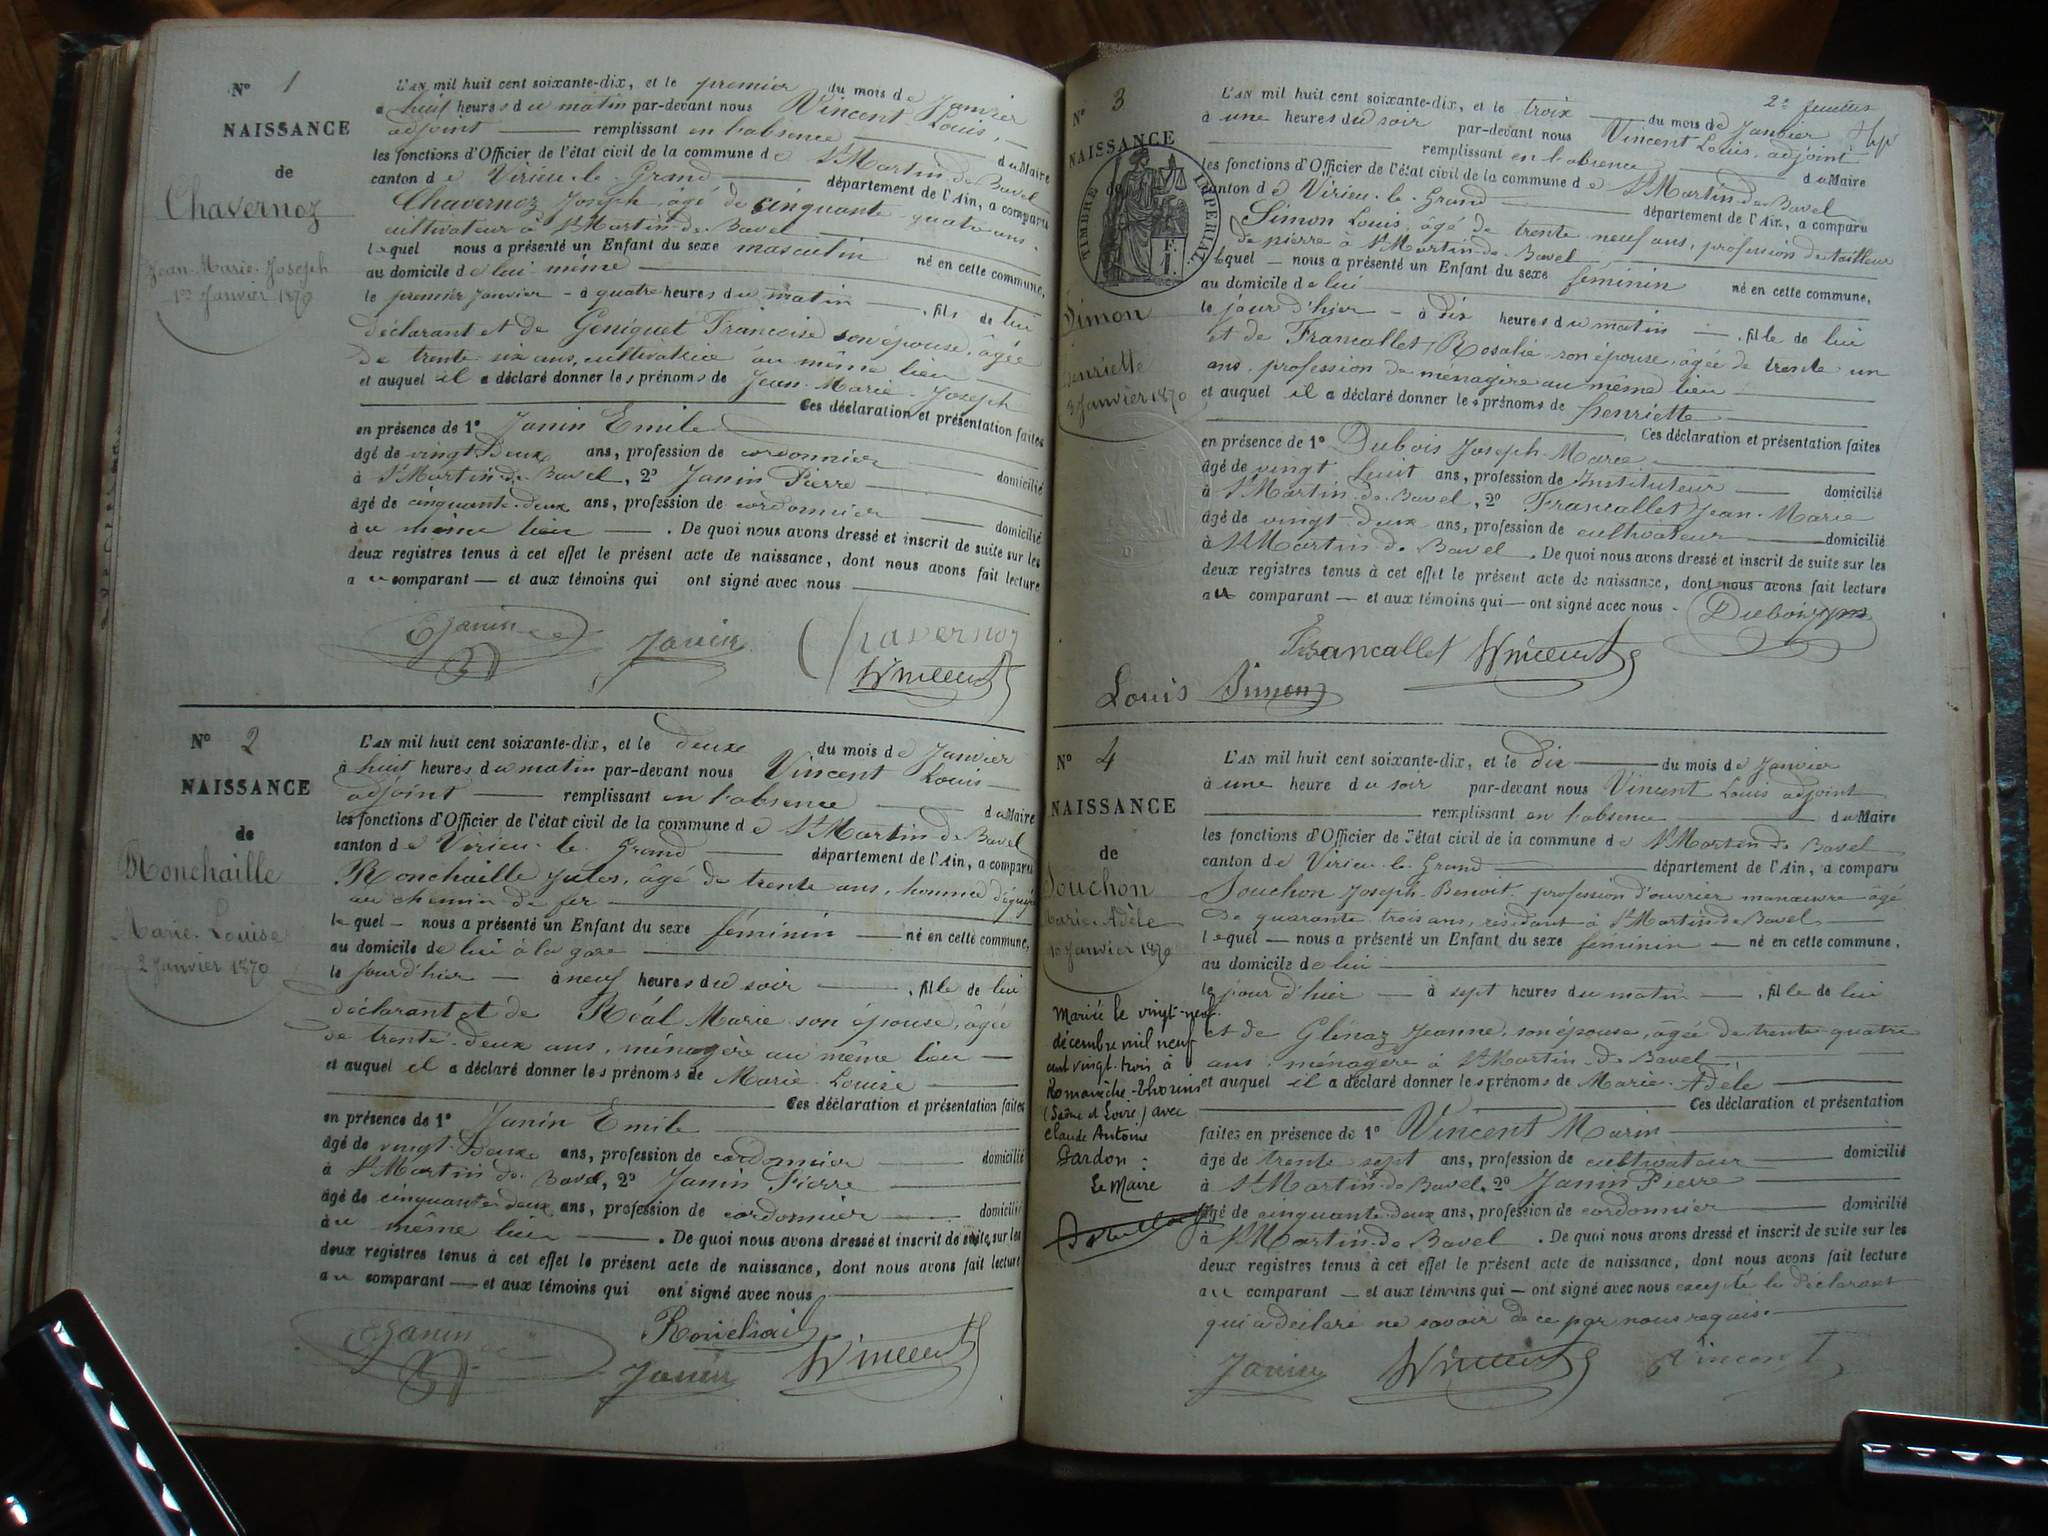 N° 1
NAISSANCE
de
Chavernoz
Jean-Marie-Joseph
1er Janvier 1870
L'AN mil huit cent soixante-dix, et le premier du mois de Janvier
à huit heures du matin par-devant nous Vincent Louis,
adjoint remplissant en l'absence du Maire
les fonctions d'Officier de l'état civil de la commune de St Martin-de-Bavel
canton de Virieu-le-Grand département de l'Ain, a comparu
Chavernoz Joseph, âgé de cinquante-quatre ans,
cultivateur à St Martin-de-Bavel
lequel nous a présenté un Enfant du sexe masculin né en cette commune,
au domicile de lui-même
le premier Janvier - à quatre heures du matin, fils de lui
déclarant et de Geniquet Françoise son épouse, âgée
de trente-six ans, cultivatrice au même lieu
et auquel il a déclaré donner les prénoms de Jean-Marie-Joseph
Ces déclaration et présentation faites
en présence de 1° Janin Emile
âgé de vingt-deux ans, profession de cordonnier domicilié
à St Martin-de-Bavel, 2° Janin Pierre
âgé de cinquante-deux ans, profession de cordonnier domicilié
au même lieu. De quoi nous avons dressé et inscrit de suite sur les
deux registres tenus à cet effet le présent acte de naissance, dont nous avons fait lecture
au comparant — et aux témoins qui ont signé avec nous
E Janin Janin Chavernoz
Vincent
N° 2
NAISSANCE
de
Ronchaille
Marie-Louise
2 Janvier 1870
L'AN mil huit cent soixante-dix, et le deux du mois de Janvier
à huit heures du matin par-devant nous Vincent Louis
adjoint remplissant en l'absence du Maire
les fonctions d'Officier de l'état civil de la commune de St Martin-de-Bavel
canton de Virieu-le-Grand département de l'Ain, a comparu
Ronchaille Jules, âgé de trente ans, homme d'équipe
au chemin de fer
lequel - nous a présenté un Enfant du sexe féminin — né en cette commune,
au domicile de lui à la gare
le jour d'hier — à neuf heures du soir, fille de lui
déclarant et de Réal Marie son épouse, âgée
de trente-deux ans, ménagère au même lieu —
et auquel il a déclaré donner les prénoms de Marie-Louise
Ces déclaration et présentation faites
en présence de 1° Janin Emile
âgé de vingt-deux ans, profession de cordonnier domicilié
à St Martin-de-Bavel, 2° Janin Pierre
âgé de cinquante-deux ans, profession de cordonnier domicilié
au même lieu. De quoi nous avons dressé et inscrit de suite, sur les
deux registres tenus à cet effet le présent acte de naissance, dont nous avons fait lecture
au comparant — et aux témoins qui ont signé avec nous
E Janin Ronchail
Janin Vincent
N° 3
NAISSANCE
de
TIMBRE IMPERIAL
Simon
Henriette
3 Janvier 1870
L'AN mil huit cent soixante-dix, et le trois du mois de Janvier
à une heures du soir par-devant nous Vincent Louis, adjoint
remplissant en l'absence du Maire
les fonctions d'Officier de l'état civil de la commune de St Martin-de-Bavel
canton de Virieu-le-Grand département de l'Ain, a comparu
Simon Louis, âgé de trente-neuf ans, profession de tailleur
de pierre à St Martin-de-Bavel
lequel — nous a présenté un Enfant du sexe féminin né en cette commune,
au domicile de lui
le jour d'hier - à dix heures du matin —, fille de lui
et de Francallet Rosalie son épouse, âgée de trente-un
ans, profession de ménagère au même lieu
et auquel il a déclaré donner les prénoms de Henriette
Ces déclaration et présentation faites
en présence de 1° Dubois Joseph-Marie
âgé de vingt-huit ans, profession de Instituteur domicilié
à St Martin-de-Bavel, 2° Francallet Jean-Marie
âgé de vingt-deux ans, profession de cultivateur domicilié
à St Martin-de-Bavel. De quoi nous avons dressé et inscrit de suite sur les
deux registres tenus à cet effet le présent acte de naissance, dont nous avons fait lecture
au comparant — et aux témoins qui — ont signé avec nous - Dubois
Francallet Vincent
Louis Simon
N° 4
NAISSANCE
de
Souchon
Marie-Adèle
10 Janvier 1870
Mariée le vingt-neuf
décembre mil neuf
cent vingt-trois à
Romanèche-Thorins
(Saône et Loire) avec
Claude Antoine
Gardon:
Le Maire
L'AN mil huit cent soixante-dix, et le dix du mois de Janvier
à une heure du soir par-devant nous Vincent Louis adjoint
remplissant en l'absence du Maire
les fonctions d'Officier de l'état civil de la commune de St Martin-de-Bavel
canton de Virieu-le-Grand département de l'Ain, a comparu
Souchon Joseph-Benoit, profession d'ouvrier manœuvre âgé
de quarante-trois ans, résidant à St Martin-de-Bavel
lequel — nous a présenté un Enfant du sexe féminin — né en cette commune,
au domicile de lui
le jour d'hier — à sept heures du matin —, fille de lui
et de Glénaz Jeanne, son épouse, âgée de trente-quatre
ans, ménagère à St Martin-de-Bavel
et auquel il a déclaré donner les prénoms de Marie-Adèle
Ces déclaration et présentation
faites en présence de 1° Vincent Marin
âgé de trente-sept ans, profession de cultivateur domicilié
à St Martin-de-Bavel, 2° Janin Pierre
âgé de cinquante-deux ans, profession de cordonnier domicilié
à St Martin-de-Bavel. De quoi nous avons dressé et inscrit de suite sur les
deux registres tenus à cet effet le présent acte de naissance, dont nous avons fait lecture
au comparant — et aux témoins qui — ont signé avec nous excepté le déclarant
qui a déclaré ne savoir de ce par nous requis.
Janin Vincent Vincent